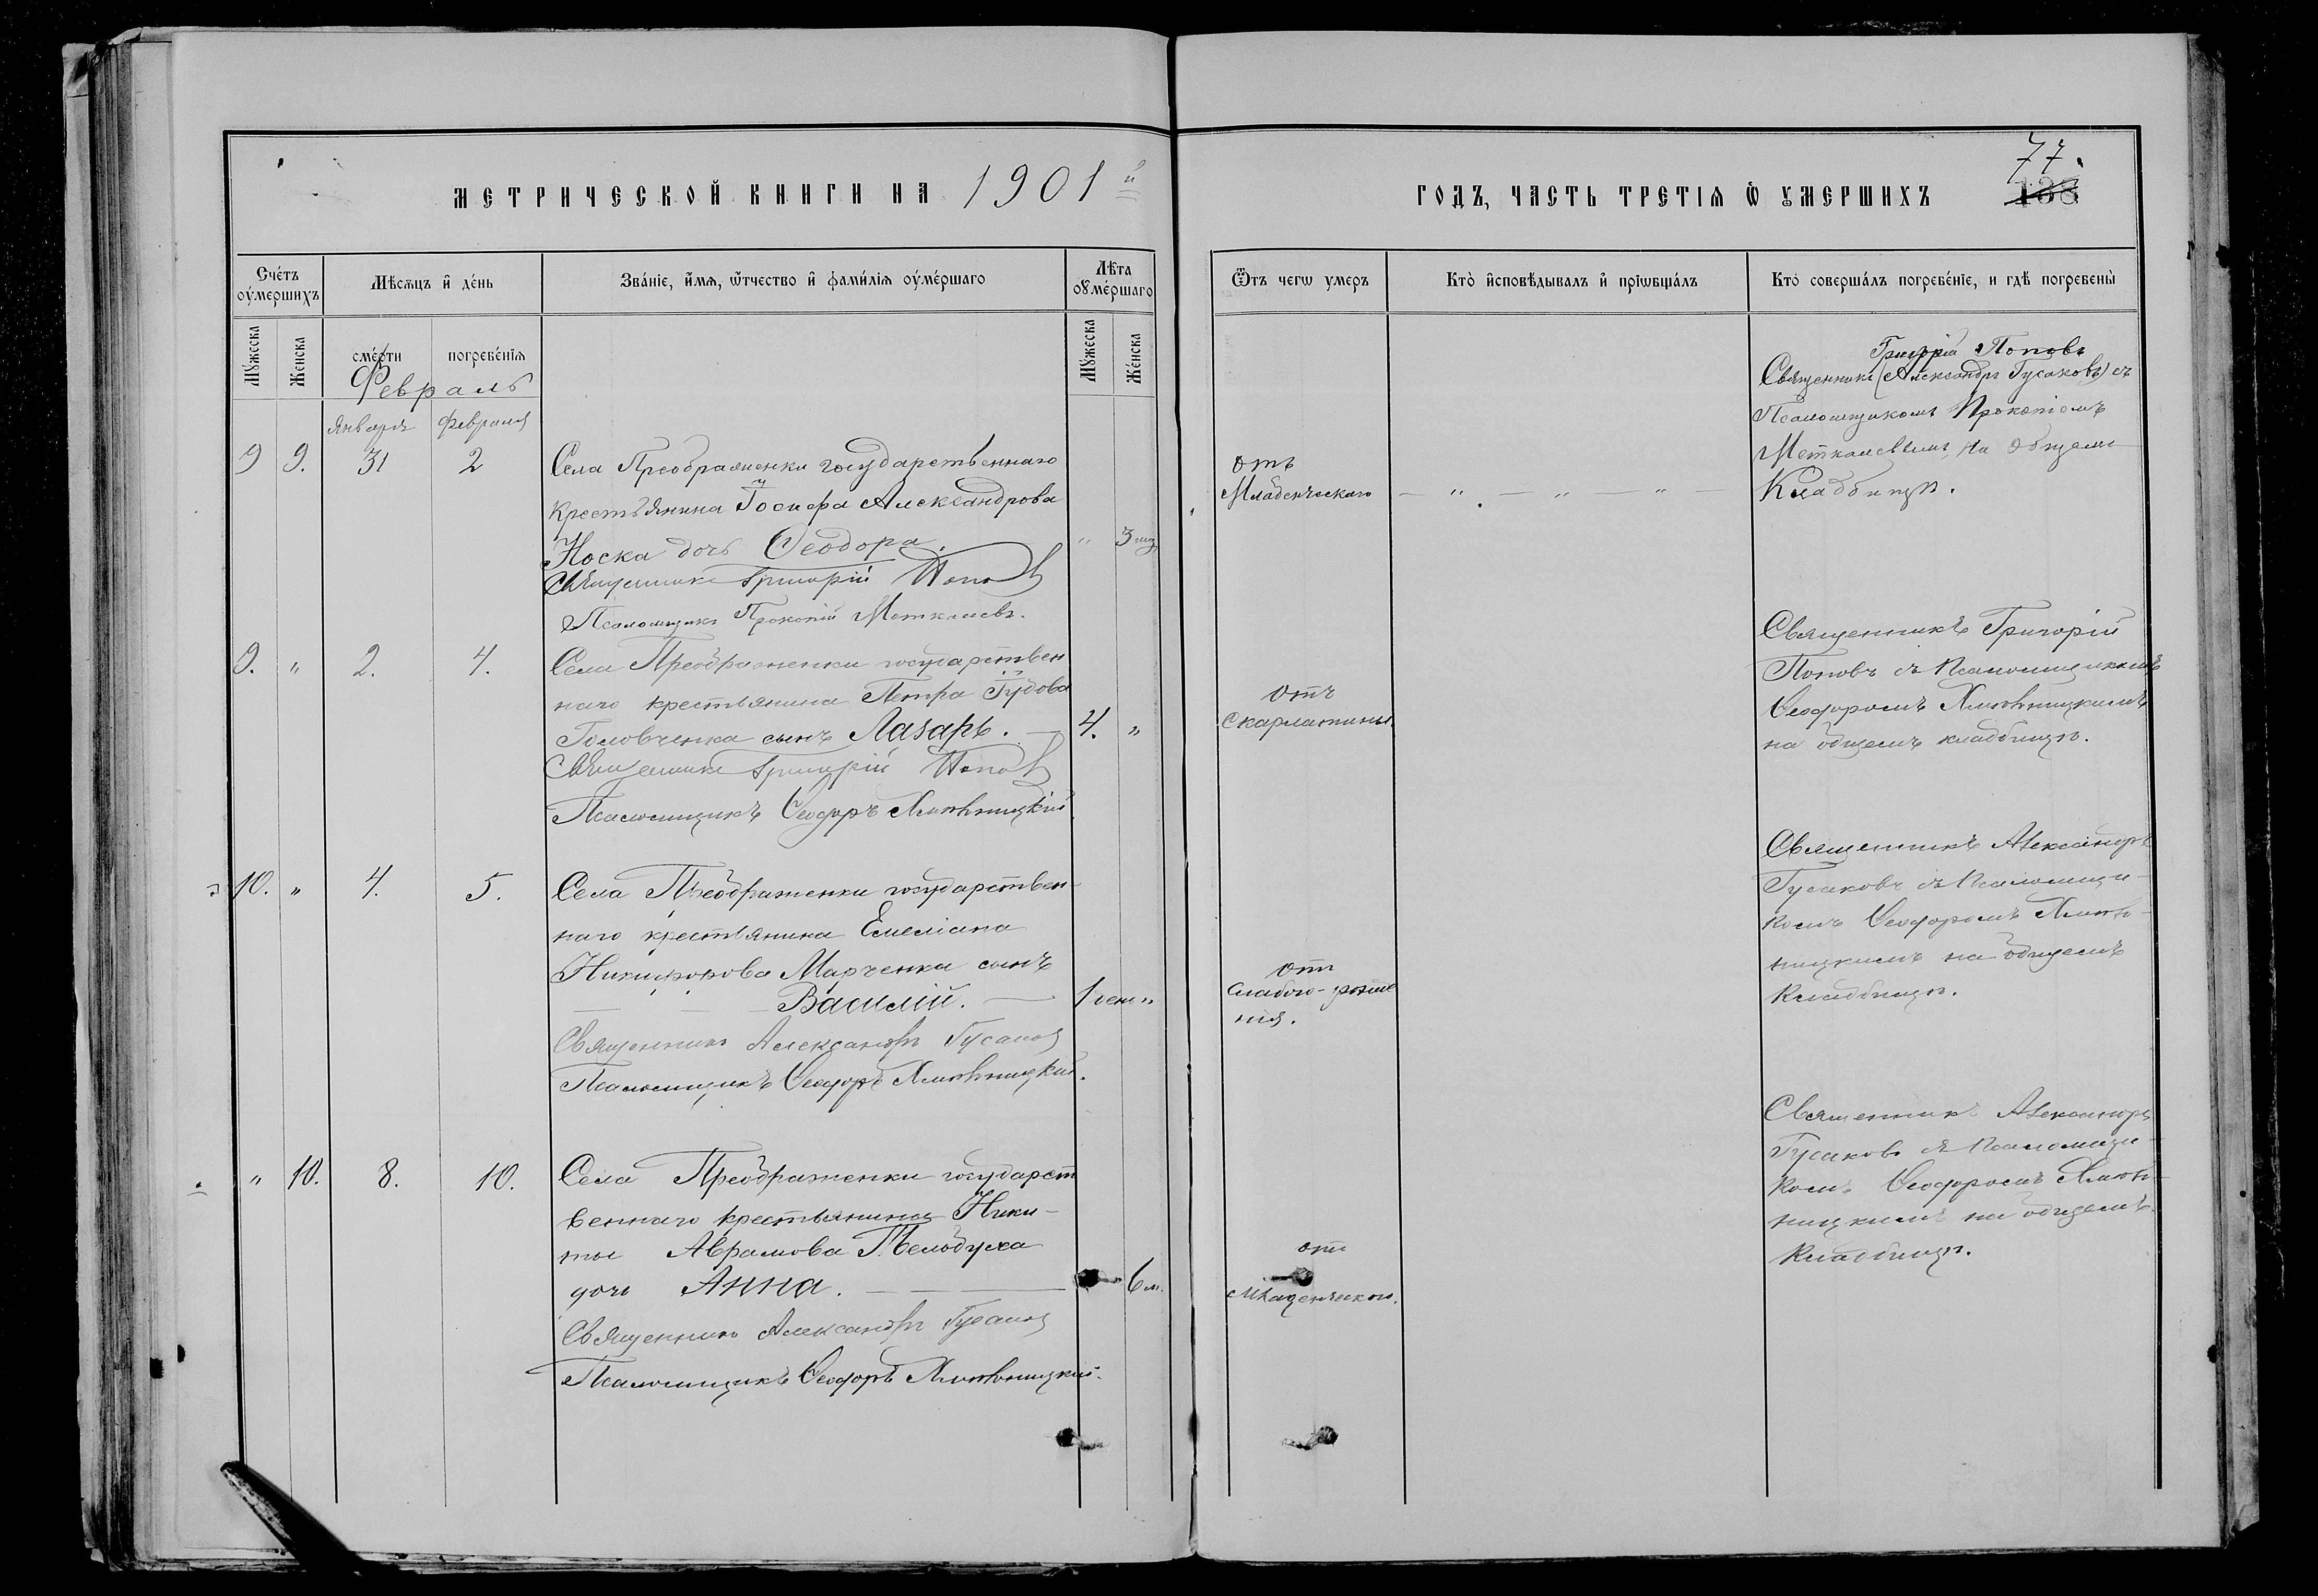 77.
138
МЕТРИЧЕСКОЙ КНИГИ НА 1901й
ГОДЪ, ЧАСТЬ ТРЕТІЯ Ѽ ОУМЕРШИХЪ
Сче́тъ оу҆ме́ршихъ
Мѣ́сяцъ и҆ де́нь
Зва́ніе, и҆́мя, ѻ҆́тчество и҆ фами́лія оу҆ме́ршаго
Лѣ́та оу҆ме́ршаго
Ѿтъ чегѡ̀ умеръ
Кто̀ и҆сповѣ́дывалъ и҆ прїѡбща́лъ
Кто̀ соверша́лъ погребе́ніе, и гдѣ̀ погребены̀
Му́жеска
Же́нска
сме́рти
погребе́нія
Му́жеска
Же́нска
Февраль
января
февраля
9 9. 31 2
Села Преображенки государственнаго
крестьянина Іосифа Александрова
Носка дочь Ѳеодора.
" 3 мц
Священникъ Григорій Поповъ
Псаломщикъ Прокопій Меткалевъ.
отъ
Младенческаго
— " — " — "
Григорій Поповъ
Священникъ (Александръ Гусаковъ) съ
Псаломщикомъ Прокопіемъ
Меткалевымъ на общемъ
Кладбищѣ.
9. " 2. 4.
Села Преображенки государствен
наго крестьянина Петра
Головченка сынъ Лазарь. —
4. "
Священникъ Григорій Поповъ
Псаломщикъ Ѳеодоръ
отъ
Скарлатины
Священникъ Григорій
Поповъ съ Псаломщикомъ
Ѳеодоромъ
на общемъ кладбищѣ.
10. " 4. 5.
Села Преображенки государствен-
наго крестьянина Емеліана
Никифорова Марченка сынъ
— — — Василій. —
1 ден "
Священникъ Александръ Гусаковъ
Псаломщикъ Ѳеодоръ
отъ
слабого-рожде
нія.
Священникъ Александръ
Гусаковъ съ Псаломщи-
комъ Ѳеодоромъ
ницкимъ на общемъ
Кладбищѣ.
" 10. 8. 10.
Села Преображенки государст
веннаго крестьянина Ники-
ты Аврамова
дочь Анна. — — —
6 м.
Священникъ Александръ Гусаковъ
Псаломщикъ Ѳеодоръ
отъ
Младенческого.
Священникъ Александръ
Гусаковъ съ Псаломщи-
комъ Ѳеодоромъ
ницкимъ на общемъ
Кладбищѣ.